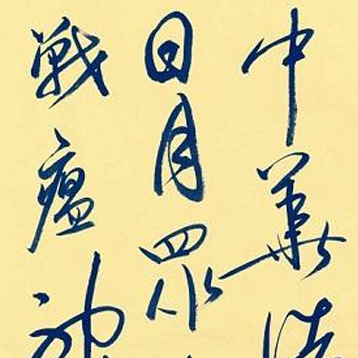 中華
日月眾
戰瘟神